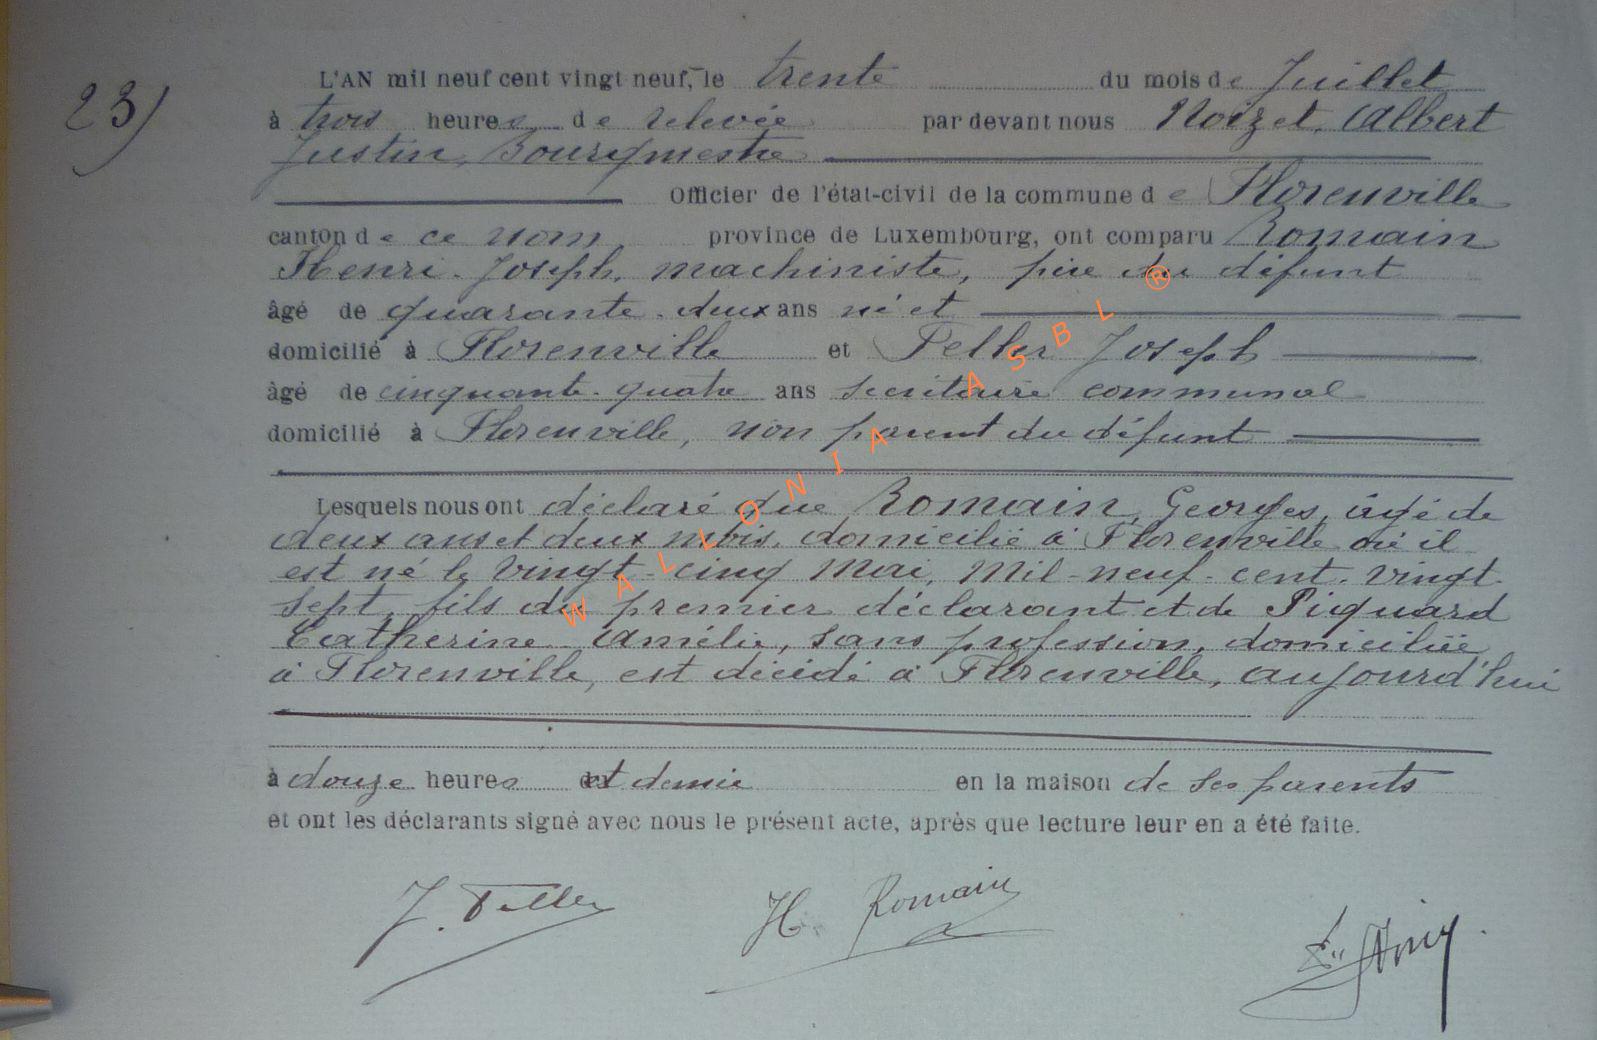 23)
L'AN mil neuf cent vingt neuf, le trente du mois de Juillet
à trois heures de relevée par devant nous Noizet, Albert
Justin, Bourgmestre
Officier de l'état-civil de la commune de Florenville
canton de ce nom province de Luxembourg, ont comparu Romain
Henri-Joseph, machiniste, père du défunt
âgé de quarante-deux ans né et
domicilié à Florenville et Feller Joseph
âgé de cinquante-quatre ans secrétaire communal
domicilié à Florenville, non parent du défunt
Lesquels nous ont déclaré que Romain, Georges, âgé de
deux ans et deux mois, domicilié à Florenville où il
est né le vingt-cinq Mai, Mil-neuf-cent-vingt-
sept, fils du premier déclarant et de Piquard
Catherine-Amélie, sans profession, domiciliée
à Florenville, est décédé à Florenville, aujourd'hui
à douze heures et demie en la maison de ses parents
et ont les déclarants signé avec nous le présent acte, après que lecture leur en a été faite.
J. Feller H. Romain
WALLONIA ASBL ®